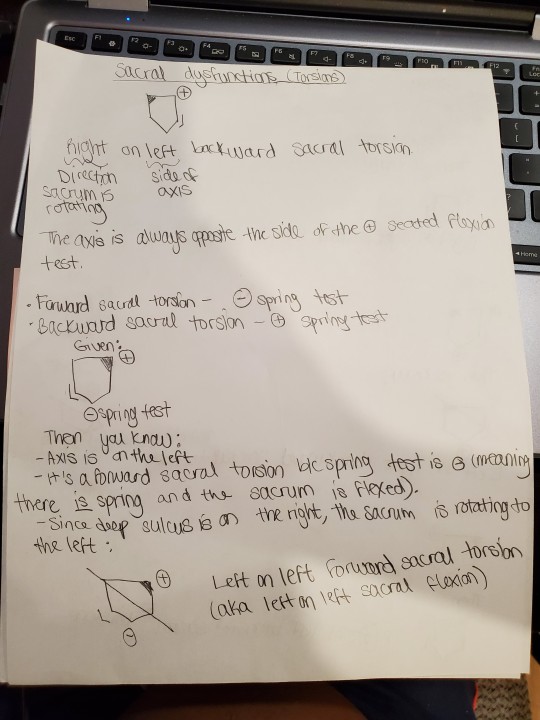 Esc F1 F2 F3 F4 F5 F6 F7 F8 F9 F10 F11 F12
Home
Sacral dysfunctions (Torsions)
+
Right on left backward sacral torsion
Direction side of
sacrum is axis
rotating
The axis is always opposite the side of the ⊕ seated flexion
test.
· Forward sacral torsion - ⊖ spring test
· Backward sacral torsion - ⊕ spring test
Given:
⊕
⊖ spring test
Then you know:
- Axis is on the left
- It's a forward sacral torsion b/c spring test is ⊖ (meaning
there is spring and the sacrum is flexed).
- Since deep sulcus is on the right, the sacrum is rotating to
the left:
⊕
L
⊖
Left on left forward sacral torsion
(aka left on left sacral flexion)